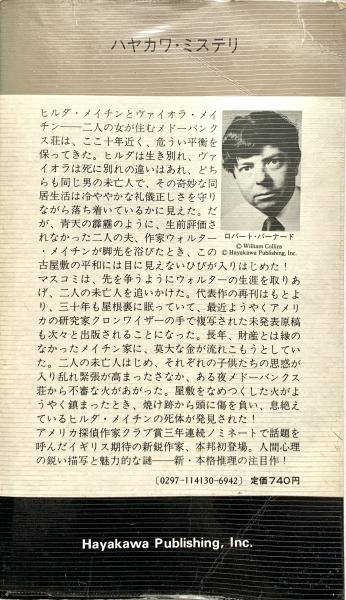 ハヤカワ・ミステリ
ヒルダ・メイチンとヴァイオラ・メイ
チン――二人の女が住むメドーバンク
ス荘は、ここ十年近く、危うい平衡を
保ってきた。ヒルダは生き別れ、ヴァ
イオラは死に別れの違いはあれ、どち
らも同じ男の未亡人で、その奇妙な同
居生活は冷ややかな礼儀正しさを守り
ながら落ち着いているかに見えた。だ
が、青天の霹靂のように、生前評価さ
れなかった二人の夫、作家ウォルター
・メイチンが脚光を浴びたとき、この
古屋敷の平和には目に見えないひびが入りはじめた！
マスコミは、先を争うようにウォルターの生涯を取りあ
げ、二人の未亡人を追いかけた。代表作の再刊はもとよ
り、三十年も屋根裏に眠っていて、最近ようやくアメリ
カの研究家クロンワイザーの手で複写された未発表原稿
も次々と出版されることになった。長年、財産とは縁の
なかったメイチン家に、莫大な金が流れこもうとしてい
た。二人の未亡人はじめ、それぞれの子供たちの思惑が
入り乱れ緊張が高まったさなか、ある夜メドーバンクス
荘から不審な火があがった。屋敷をなめつくした火がよ
うやく鎮まったとき、焼け跡から頭に傷を負い、息絶え
ているヒルダ・メイチンの死体が発見された！
アメリカ探偵作家クラブ賞三年連続ノミネートで話題を
呼んだイギリス期待の新鋭作家、本邦初登場。人間心理
の鋭い描写と魅力的な謎――新・本格推理の注目作！
ロバート・バーナード
© William Collins
© Hayakawa Publishing, Inc.
〔0297-114130-6942〕 定価740円
Hayakawa Publishing, Inc.